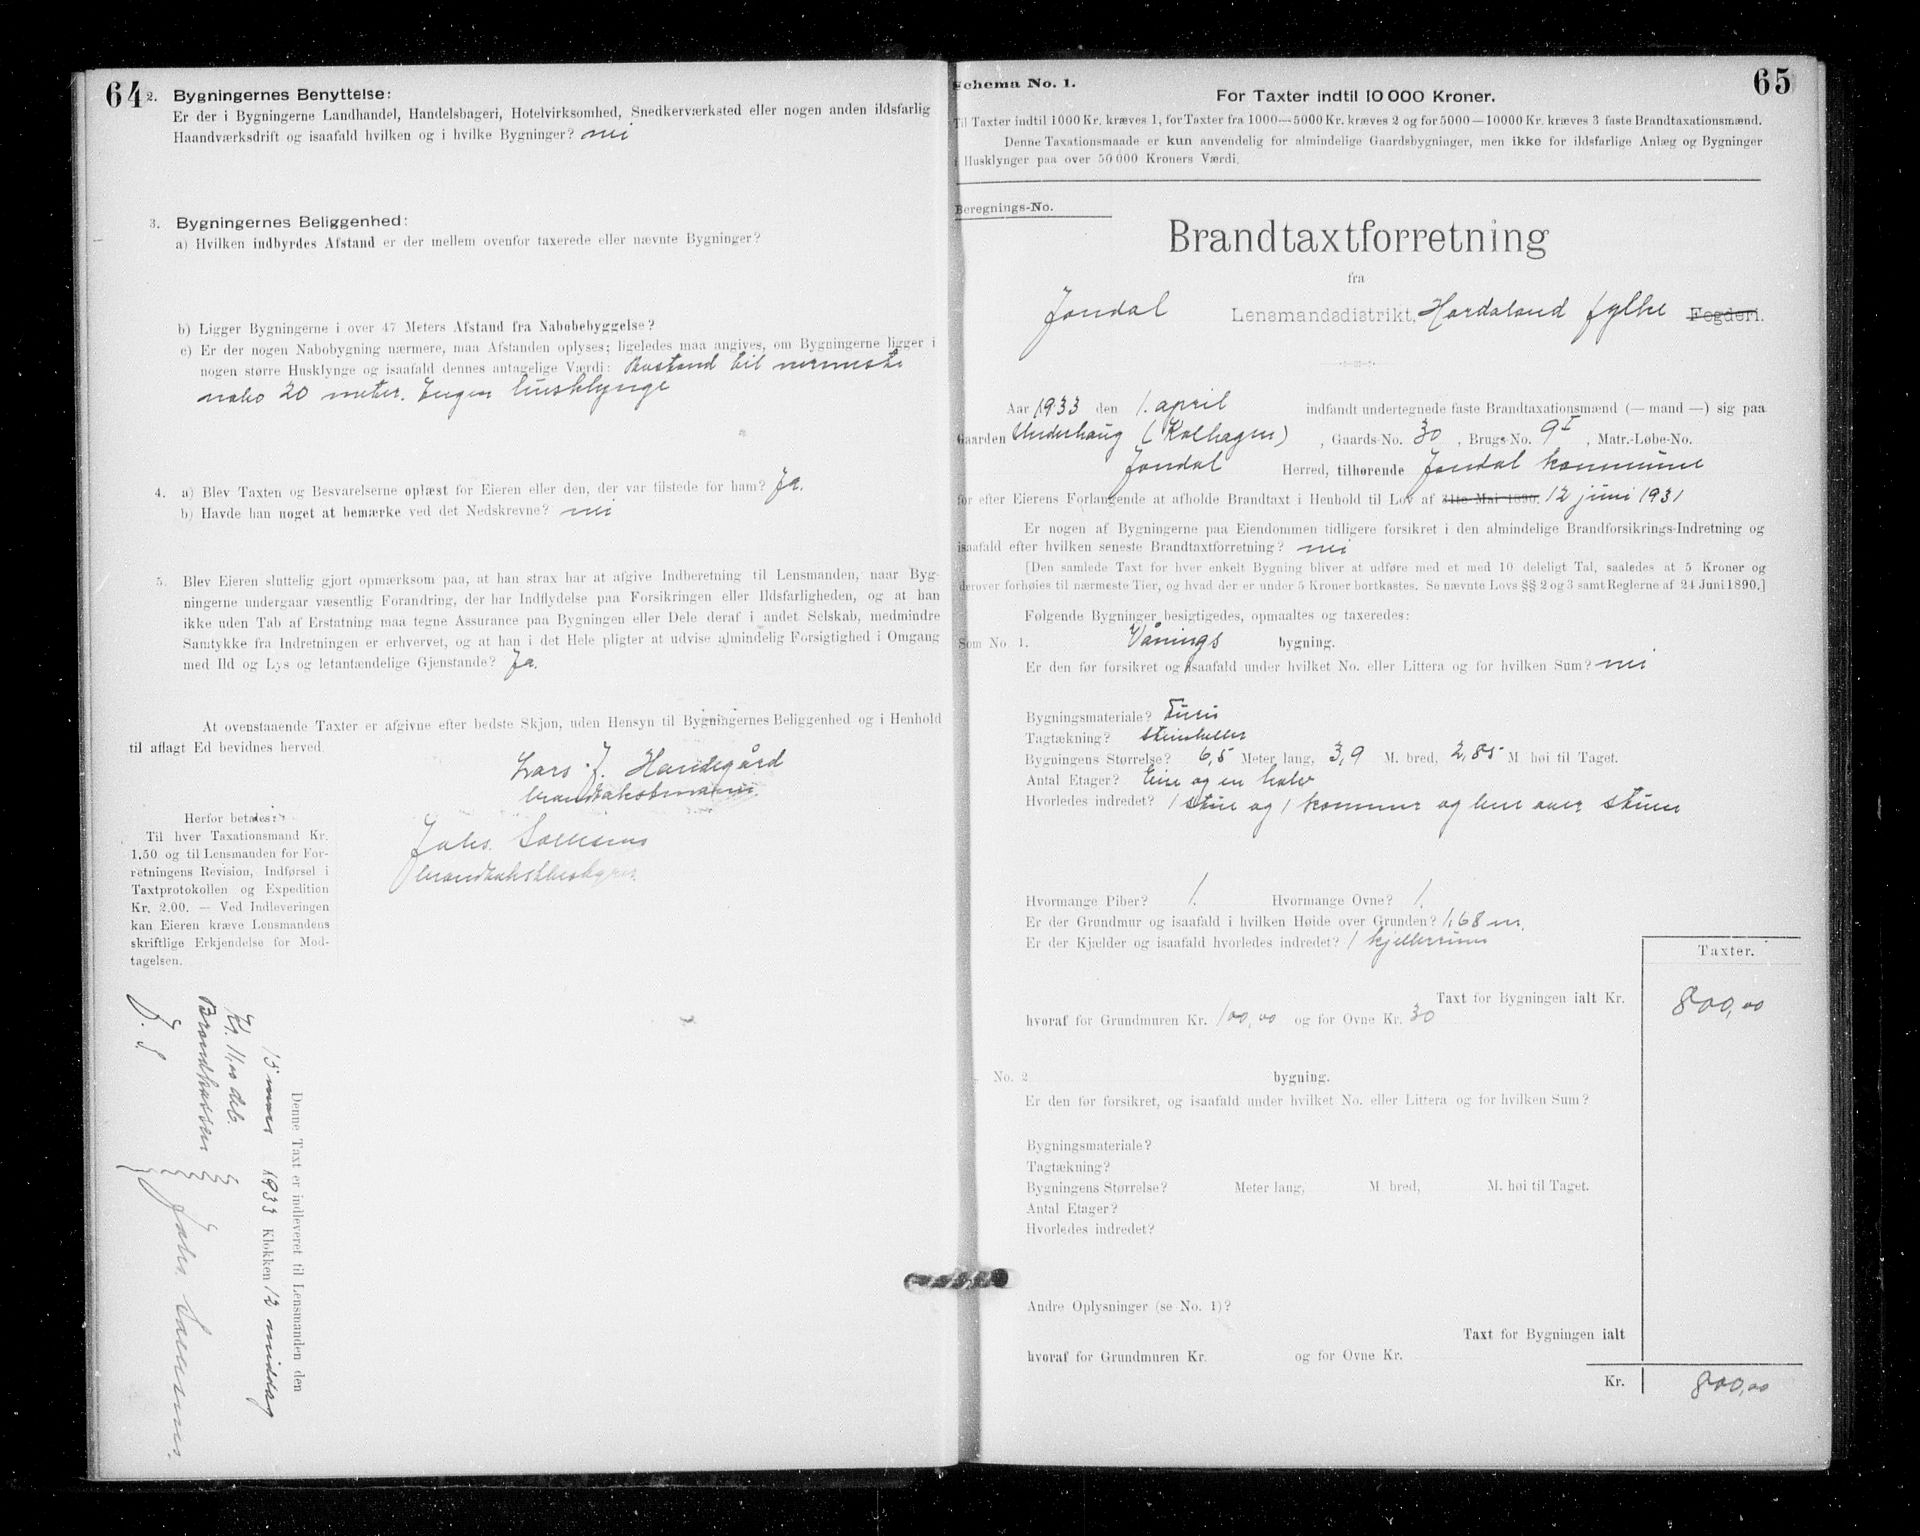 64
2. Bygningernes Benyttelse:
Er der i Bygningerne Landhandel, Handelsbageri, Hotelvirksomhed, Snedkerværksted eller nogen anden ildsfarlig
Haandværksdrift og isaafald hvilken og i hvilke Bygninger? nei
3. Bygningernes Beliggenhed:
a) Hvilken indbyrdes Afstand er der mellem ovenfor taxerede eller nævnte Bygninger?
b) Ligger Bygningerne i over 47 Meters Afstand fra Nabobebyggelse?
c) Er der nogen Nabobygning nærmere, maa Afstanden oplyses; ligeledes maa angives, om Bygningerne ligger i
nogen større Husklynge og isaafald dennes antagelige Værdi: Avstand til nærmeste
nabo 20 meter. Ingen husklynge
4. a) Blev Taxten og Besvarelserne oplæst for Eieren eller den, der var tilstede for ham? Ja.
b) Havde han noget at bemærke ved det Nedskrevne? nei
5. Blev Eieren sluttelig gjort opmærksom paa, at han strax har at afgive Indberetning til Lensmanden, naar Byg-
ningerne undergaar væsentlig Forandring, der har Indflydelse paa Forsikringen eller Ildsfarligheden, og at han
ikke uden Tab af Erstatning maa tegne Assurance paa Bygningen eller Dele deraf i andet Selskab, medmindre
Samtykke fra Indretningen er erhvervet, og at han i det Hele pligter at udvise almindelig Forsigtighed i Omgang
med Ild og Lys og letantændelige Gjenstande? Ja.
At ovenstaaende Taxter er afgivne efter bedste Skjøn, uden Hensyn til Bygningernes Beliggenhed og i Henhold
til aflagt Ed bevidnes herved.
Lars J. Handegård
brandtakstmann.
Johs. Solheims
brandtakstbestyrer.
Herfor betales:
Til hver Taxationsmand Kr.
1.50 og til Lensmanden for For-
retningens Revision, Indførsel i
Taxtprotokollen og Expedition
Kr. 2.00. — Ved Indleveringen
kan Eieren kræve Lensmandens
skriftlige Erkjendelse for Mod-
tagelsen.
Denne Taxt er indleveret til Lensmanden den
15 mars 1933 Klokken 12 middag
Kr. 11,00 deb.
Brandkassen
J. S.
Johs. Solheims.
65
Schema No. 1.
For Taxter indtil 10 000 Kroner.
Til Taxter indtil 1000 Kr. kræves 1, for Taxter fra 1000—5000 Kr. kræves 2 og for 5000—10000 Kr. kræves 3 faste Brandtaxationsmænd.
Denne Taxationsmaade er kun anvendelig for almindelige Gaardsbygninger, men ikke for ildsfarlige Anlæg og Bygninger
i Husklynger paa over 50 000 Kroners Værdi.
Beregnings-No.
Brandtaxtforretning
fra
Jondal Lensmandsdistrikt, Hordaland fylke Fogderi.
Aar 1933 den 1. april indfandt undertegnede faste Brandtaxationsmænd (— mand —) sig paa
Gaarden Underhaug (Kolhagen), Gaards-No. 30, Brugs-No. 9 I, Matr.-Løbe-No.
Jondal Herred, tilhørende Jondal kommune
for efter Eierens Forlangende at afholde Brandtaxt i Henhold til Lov af 31te Mai 1890. 12 juni 1931
Er nogen af Bygningerne paa Eiendommen tidligere forsikret i den almindelige Brandforsikrings-Indretning og
isaafald efter hvilken seneste Brandtaxtforretning? nei
[Den samlede Taxt for hver enkelt Bygning bliver at udføre med et med 10 deleligt Tal, saaledes at 5 Kroner og
derover forhøies til nærmeste Tier, og hvad der er under 5 Kroner bortkastes. Se nævnte Lovs §§ 2 og 3 samt Reglerne af 24 Juni 1890.]
Følgende Bygninger besigtigedes, opmaaltes og taxeredes:
Som No. 1. Vånings bygning.
Er den før forsikret og isaafald under hvilket No. eller Littera og for hvilken Sum? nei
Bygningsmateriale? Furu
Tagtækning? steinheller
Bygningens Størrelse? 6,5 Meter lang, 3,9 M. bred, 2,85 M. høi til Taget.
Antal Etager? Eine og en halv
Hvorledes indredet? 1 stue og 1 kammer og hems over stuen
Hvormange Piber? 1. Hvormange Ovne? 1.
Er der Grundmur og isaafald i hvilken Høide over Grunden? 1,68 m.
Er der Kjælder og isaafald hvorledes indredet? 1 kjellerrum
Taxter.
Taxt for Bygningen ialt Kr. 800,00
hvoraf for Grundmuren Kr. 100,00 og for Ovne Kr. 30
No. 2 bygning.
Er den før forsikret, og isaafald under hvilket No. eller Littera og for hvilken Sum?
Bygningsmateriale?
Tagtækning?
Bygningens Størrelse? Meter lang, M. bred, M. høi til Taget.
Antal Etager?
Hvorledes indredet?
Andre Oplysninger (se No. 1)?
Taxt for Bygningen ialt
hvoraf for Grundmuren Kr. og for Ovne Kr.
Kr. 800,00